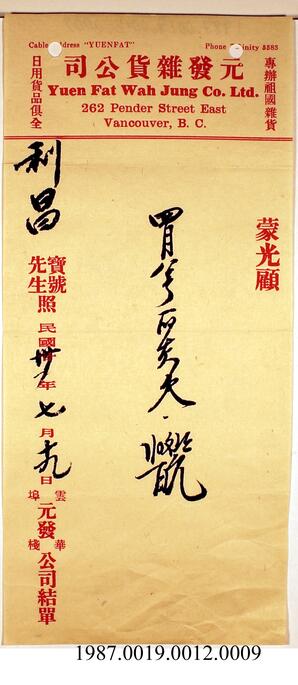 Cable Address "YUENFAT"
Phone Trinity 5383
元發雜貨公司
專辦祖國雜貨
日用貨品俱全
Yuen Fat Wah Jung Co. Ltd.
262 Pender Street East
Vancouver, B. C.
蒙光顧
利昌
寶號
先生 照
民國卅年七月九日
雲埠
元發
華棧
公司結單
1987.0019.0012.0009